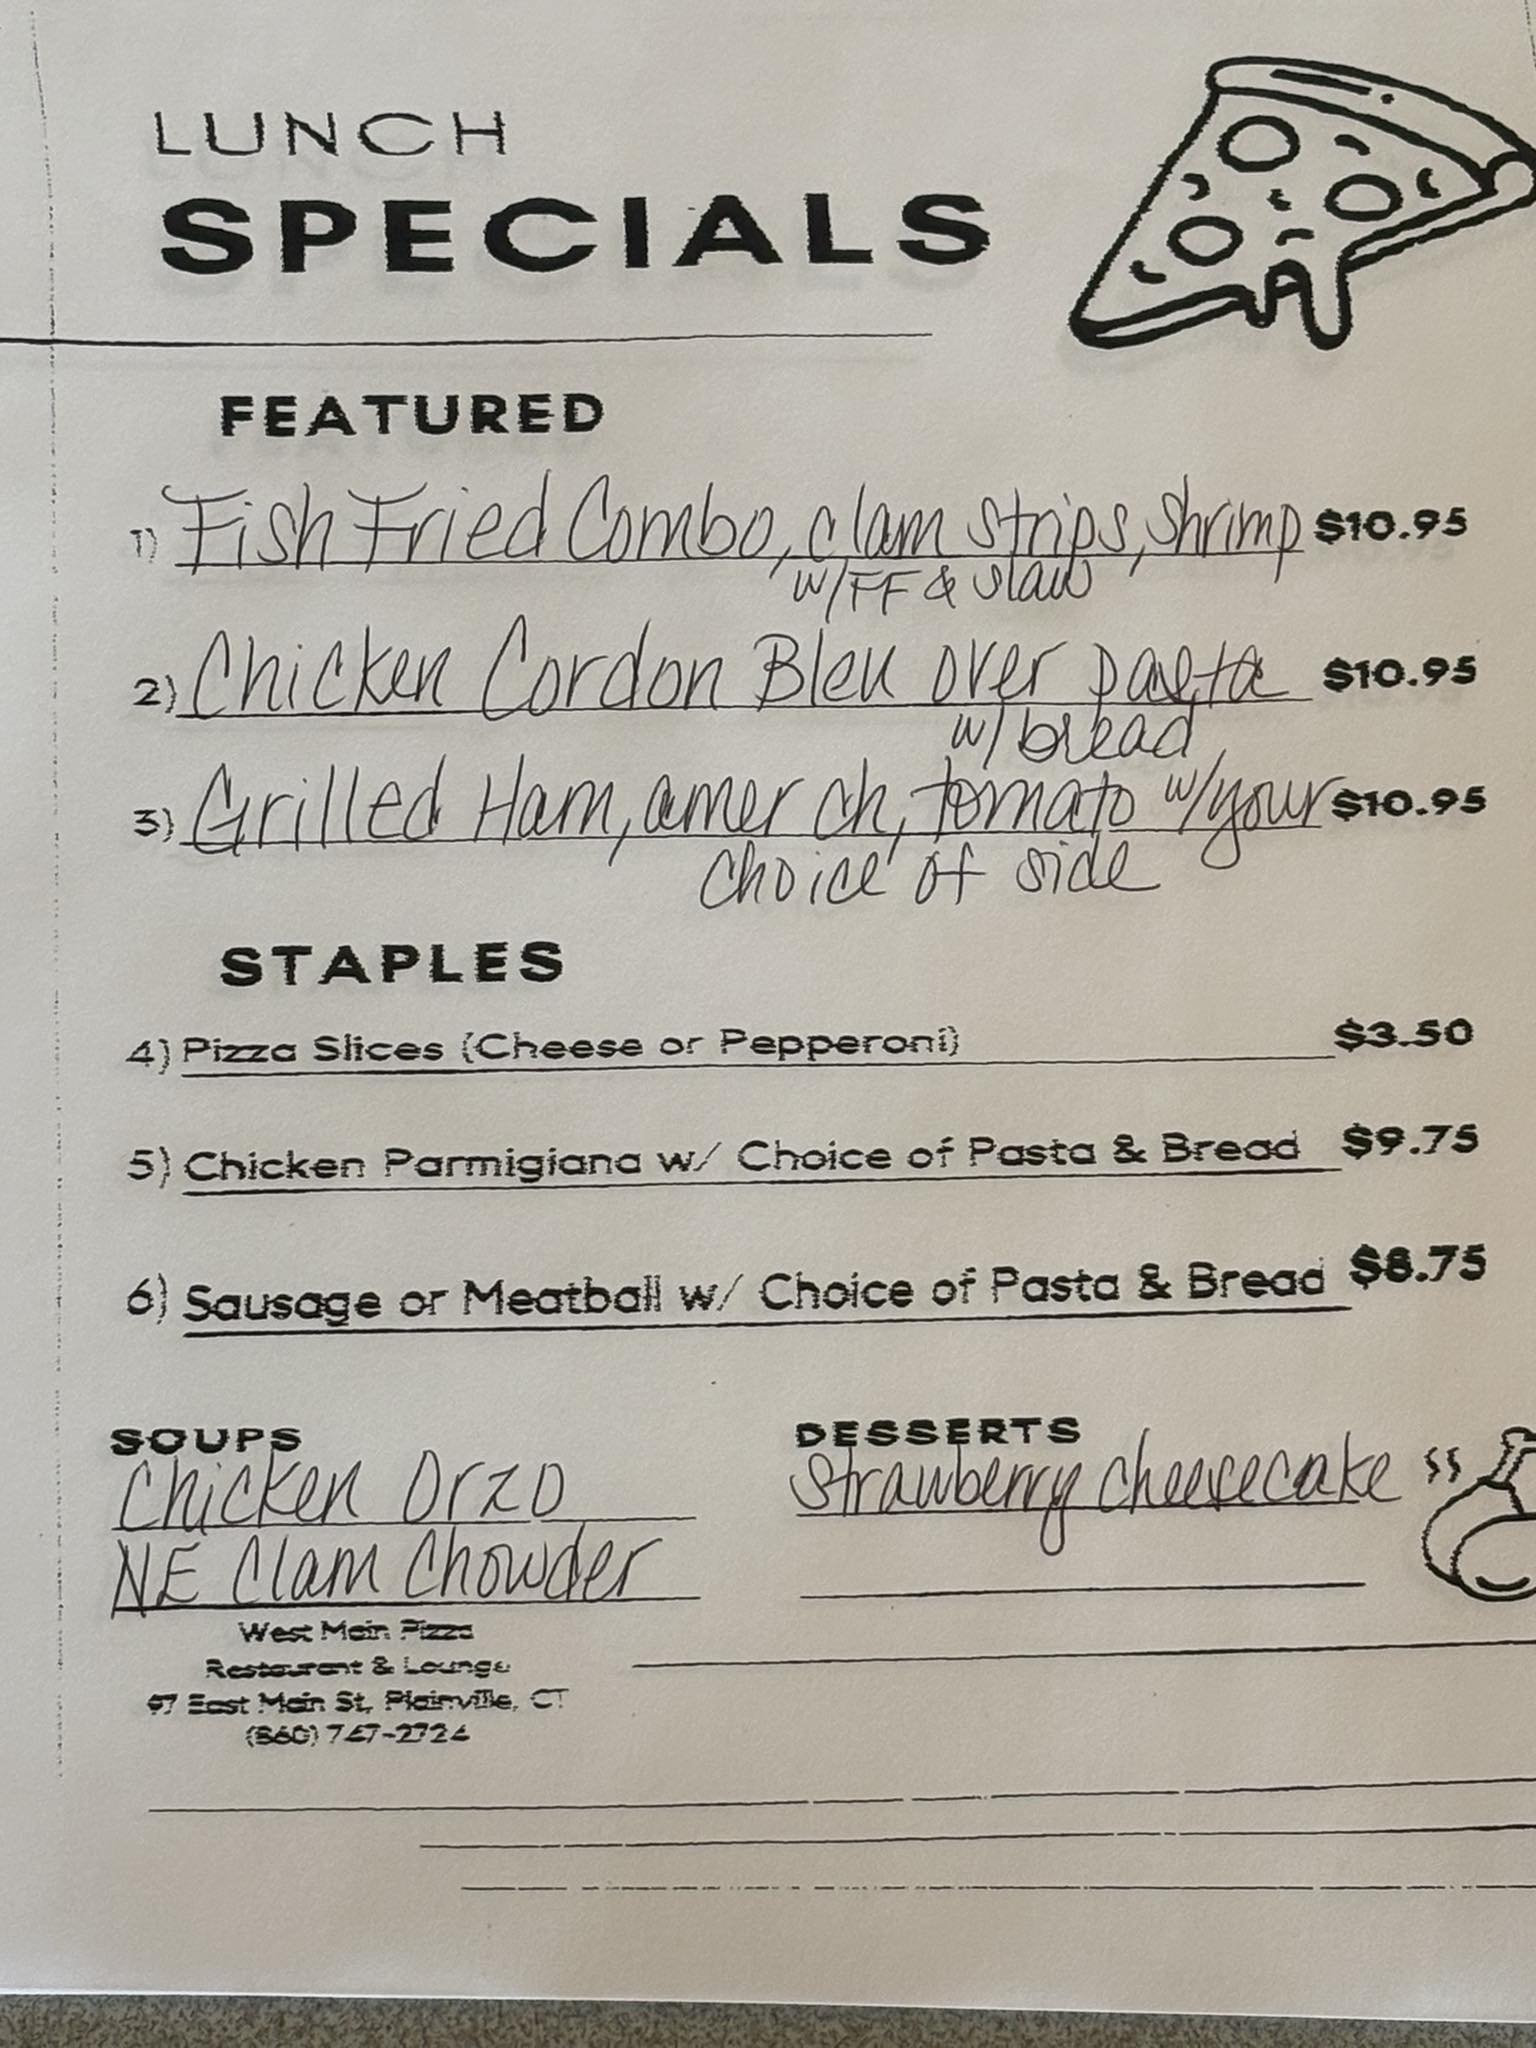 LUNCH
SPECIALS
FEATURED
1) Fish Fried Combo, clam strips, shrimp $10.95
w/FF & slaw
2) Chicken Cordon Bleu over pasta $10.95
w/ bread
3) Grilled Ham, amer ch, tomato w/your $10.95
choice of side
STAPLES
4) Pizza Slices (Cheese or Pepperoni) $3.50
5) Chicken Parmigiana w/ Choice of Pasta & Bread $9.75
6) Sausage or Meatball w/ Choice of Pasta & Bread $8.75
SOUPS
Chicken Orzo
NE Clam Chowder
DESSERTS
Strawberry cheesecake
West Main Pizza
Restaurant & Lounge
97 East Main St, Plainville, CT
(860) 747-2724